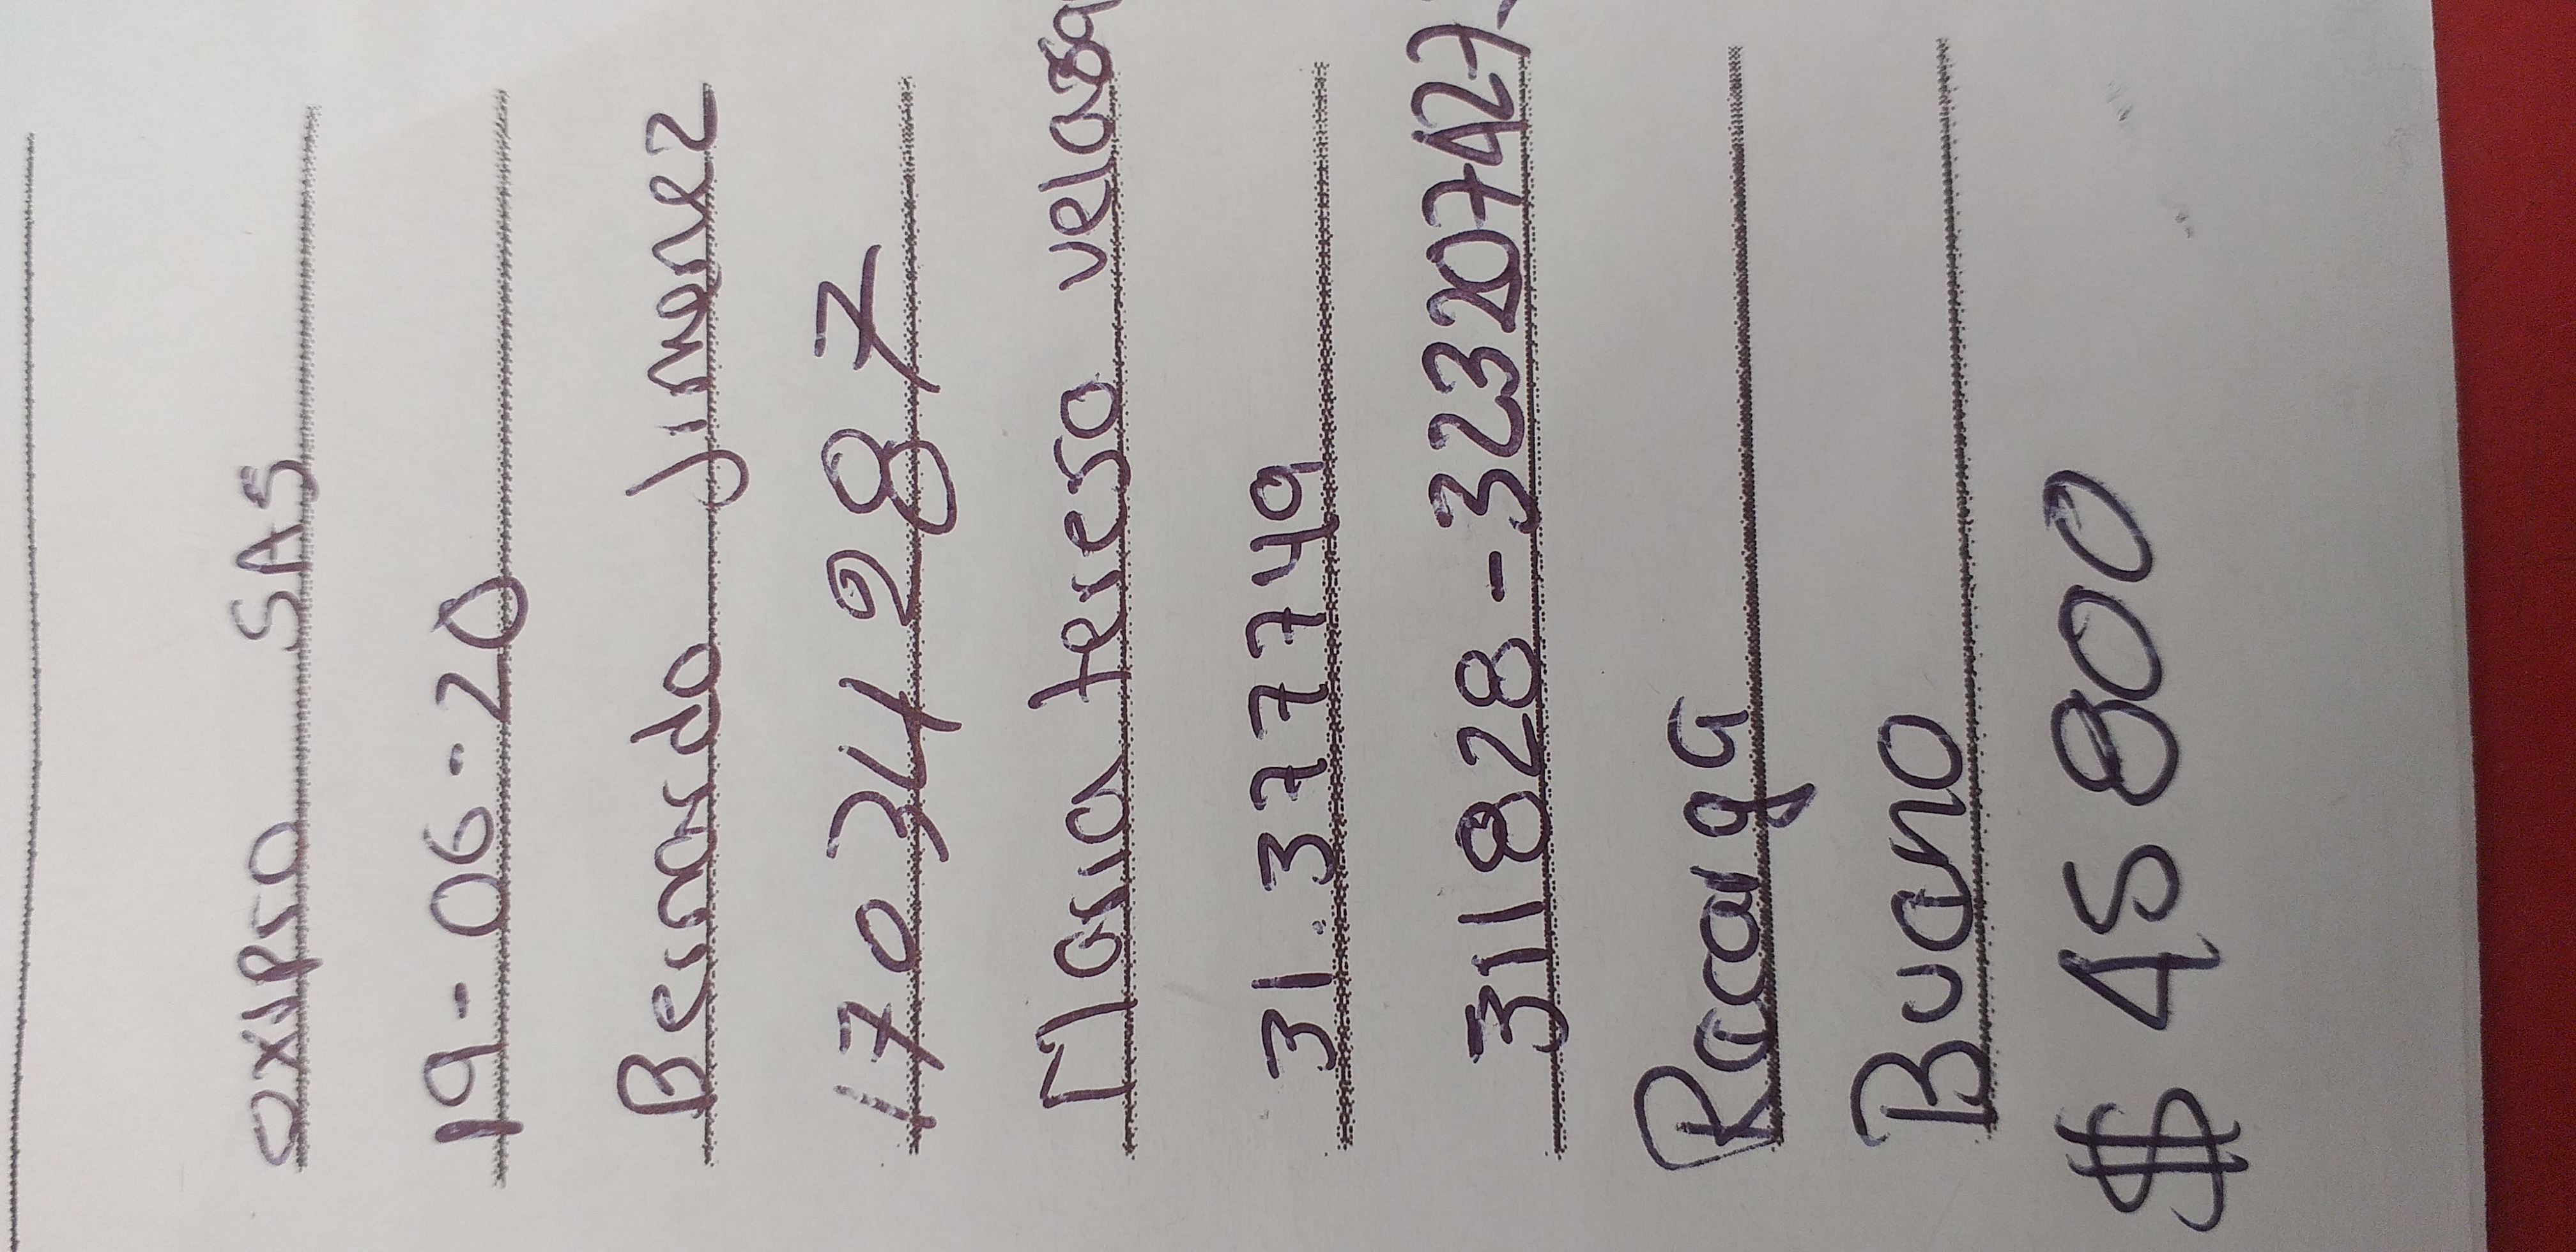 oxipro SAS
19-06-20
Bernardo Jimenez
17034287
Maria tereso
31.377749
311828-32320742
Recarga
Bueno
$ 45800